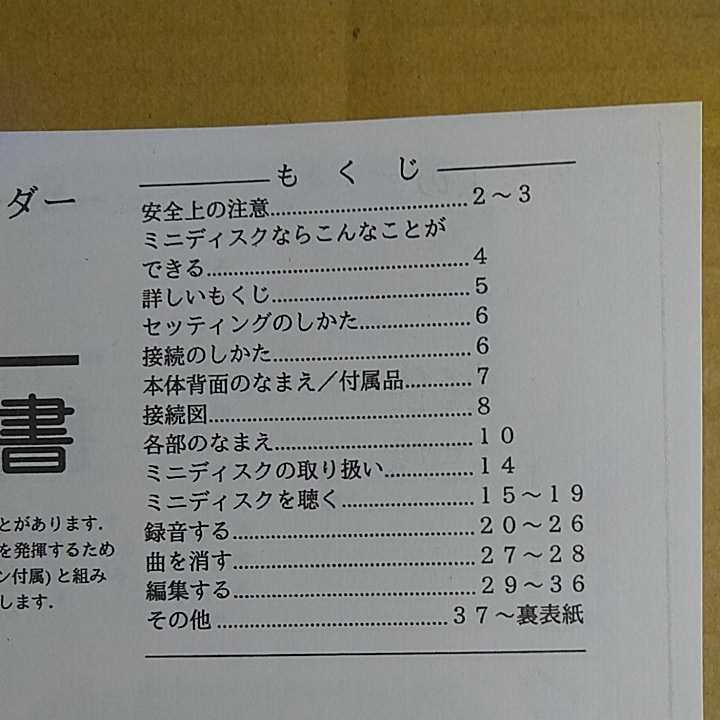 ダー
書
とがあります.
を発揮するため
ン付属)と組み
します.
もくじ
安全上の注意..............................2～3
ミニディスクならこんなことが
できる........................................4
詳しいもくじ..............................5
セッティングのしかた.................6
接続のしかた..............................6
本体背面のなまえ／付属品..........7
接続図........................................8
各部のなまえ..............................10
ミニディスクの取り扱い.............14
ミニディスクを聴く....................15～19
録音する.....................................20～26
曲を消す.....................................27～28
編集する.....................................29～36
その他...................................37～裏表紙